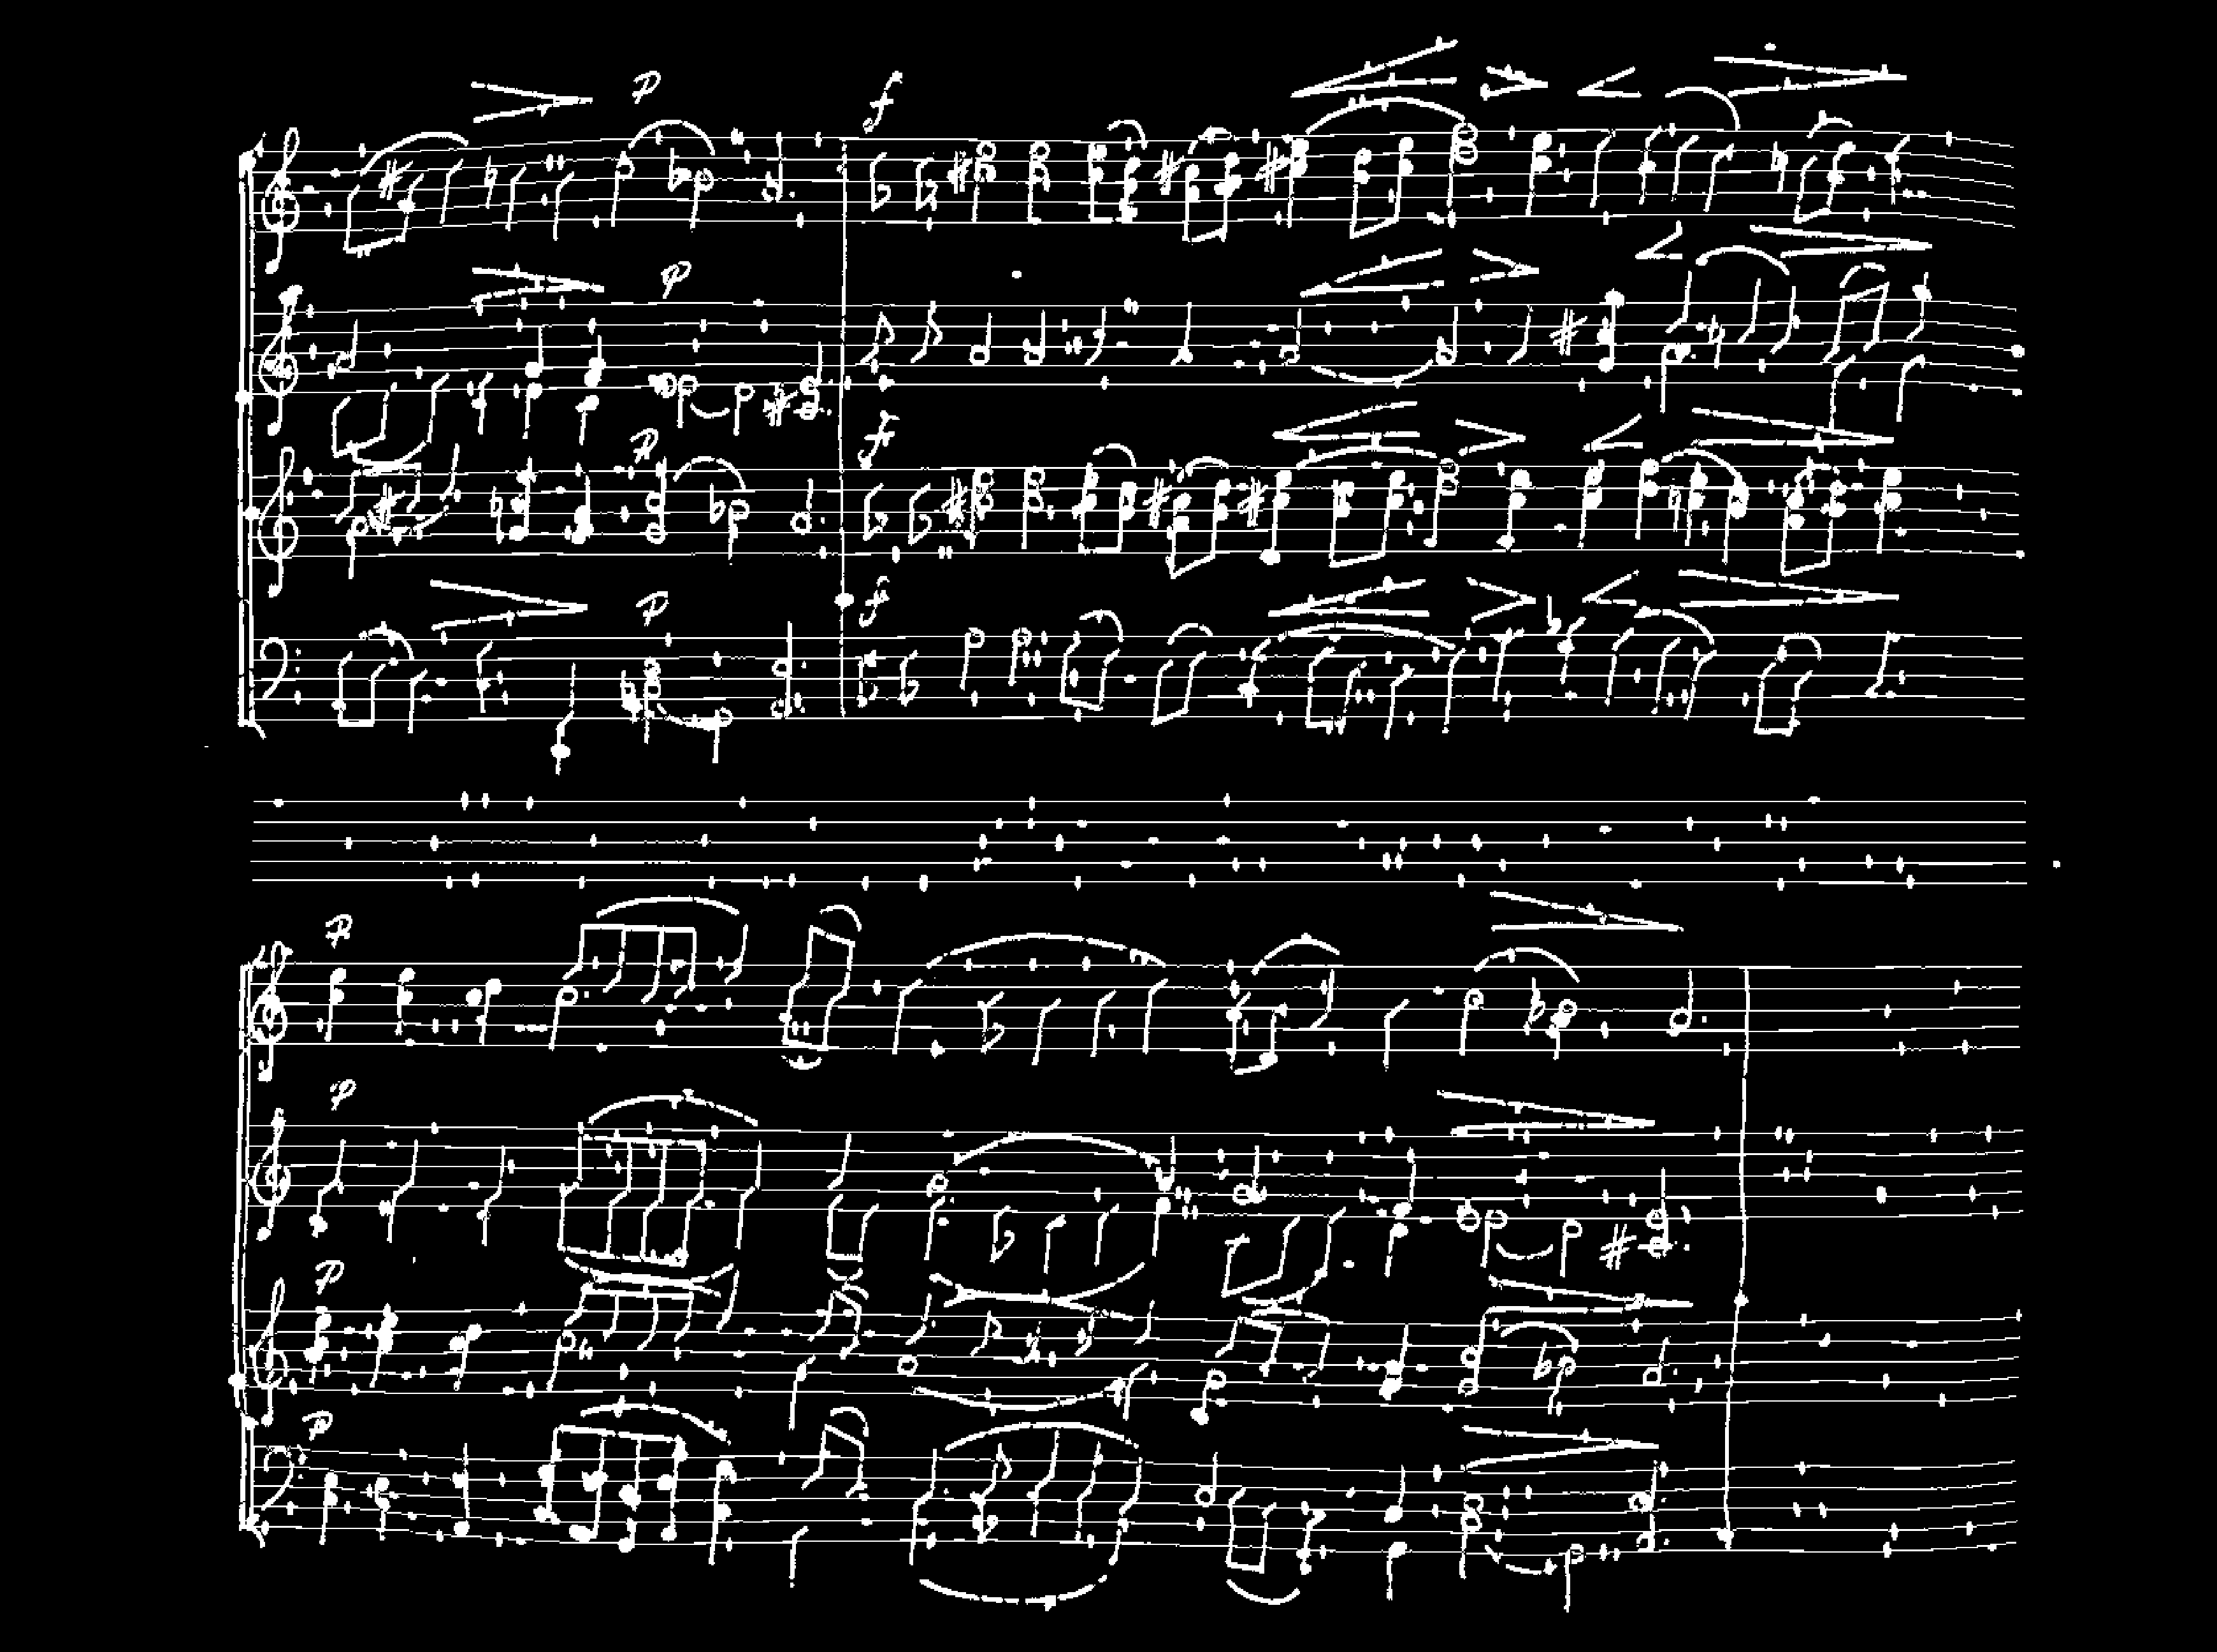 p
f
p
p
f
p
f
p
p
p
p